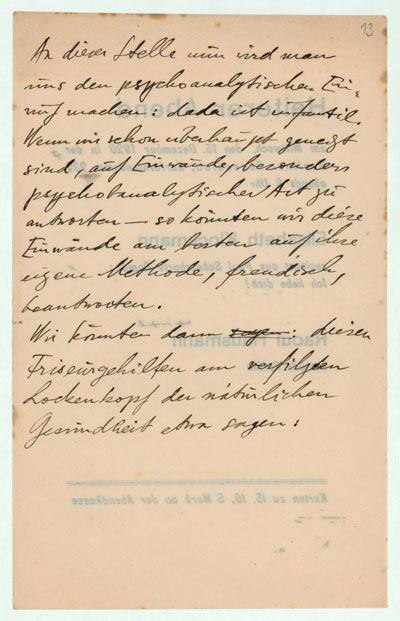 13
An dieser Stelle nun wird man
uns den psychoanalytischen Ein-
wurf machen: dada ist infantil.
Wenn wir schon überhaupt geneigt
sind, auf Einwände besonders
psychoanalytischer Art zu
antworten — so könnten wir diese
Einwände am besten auf ihre
eigene Methode, freudisch,
beantworten.
Wir könnten dann sagen: diesen
Friseurgehilfen am verfilzten
Lockenkopf der natürlichen
Gesundheit etwa sagen:
Karten zu 15, 10, 5 Mark an der Abendkasse